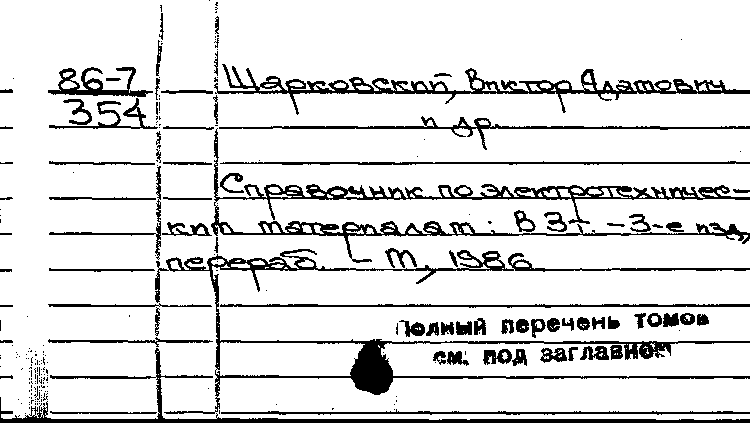 86-7
354
Шарковский, Виктор Адамович
и др.
Справочник по электротехничес-
ким материалам: В 3 т. – 3-е изд.,
перераб. – М., 1986
Полный перечень томов
см. под заглавием